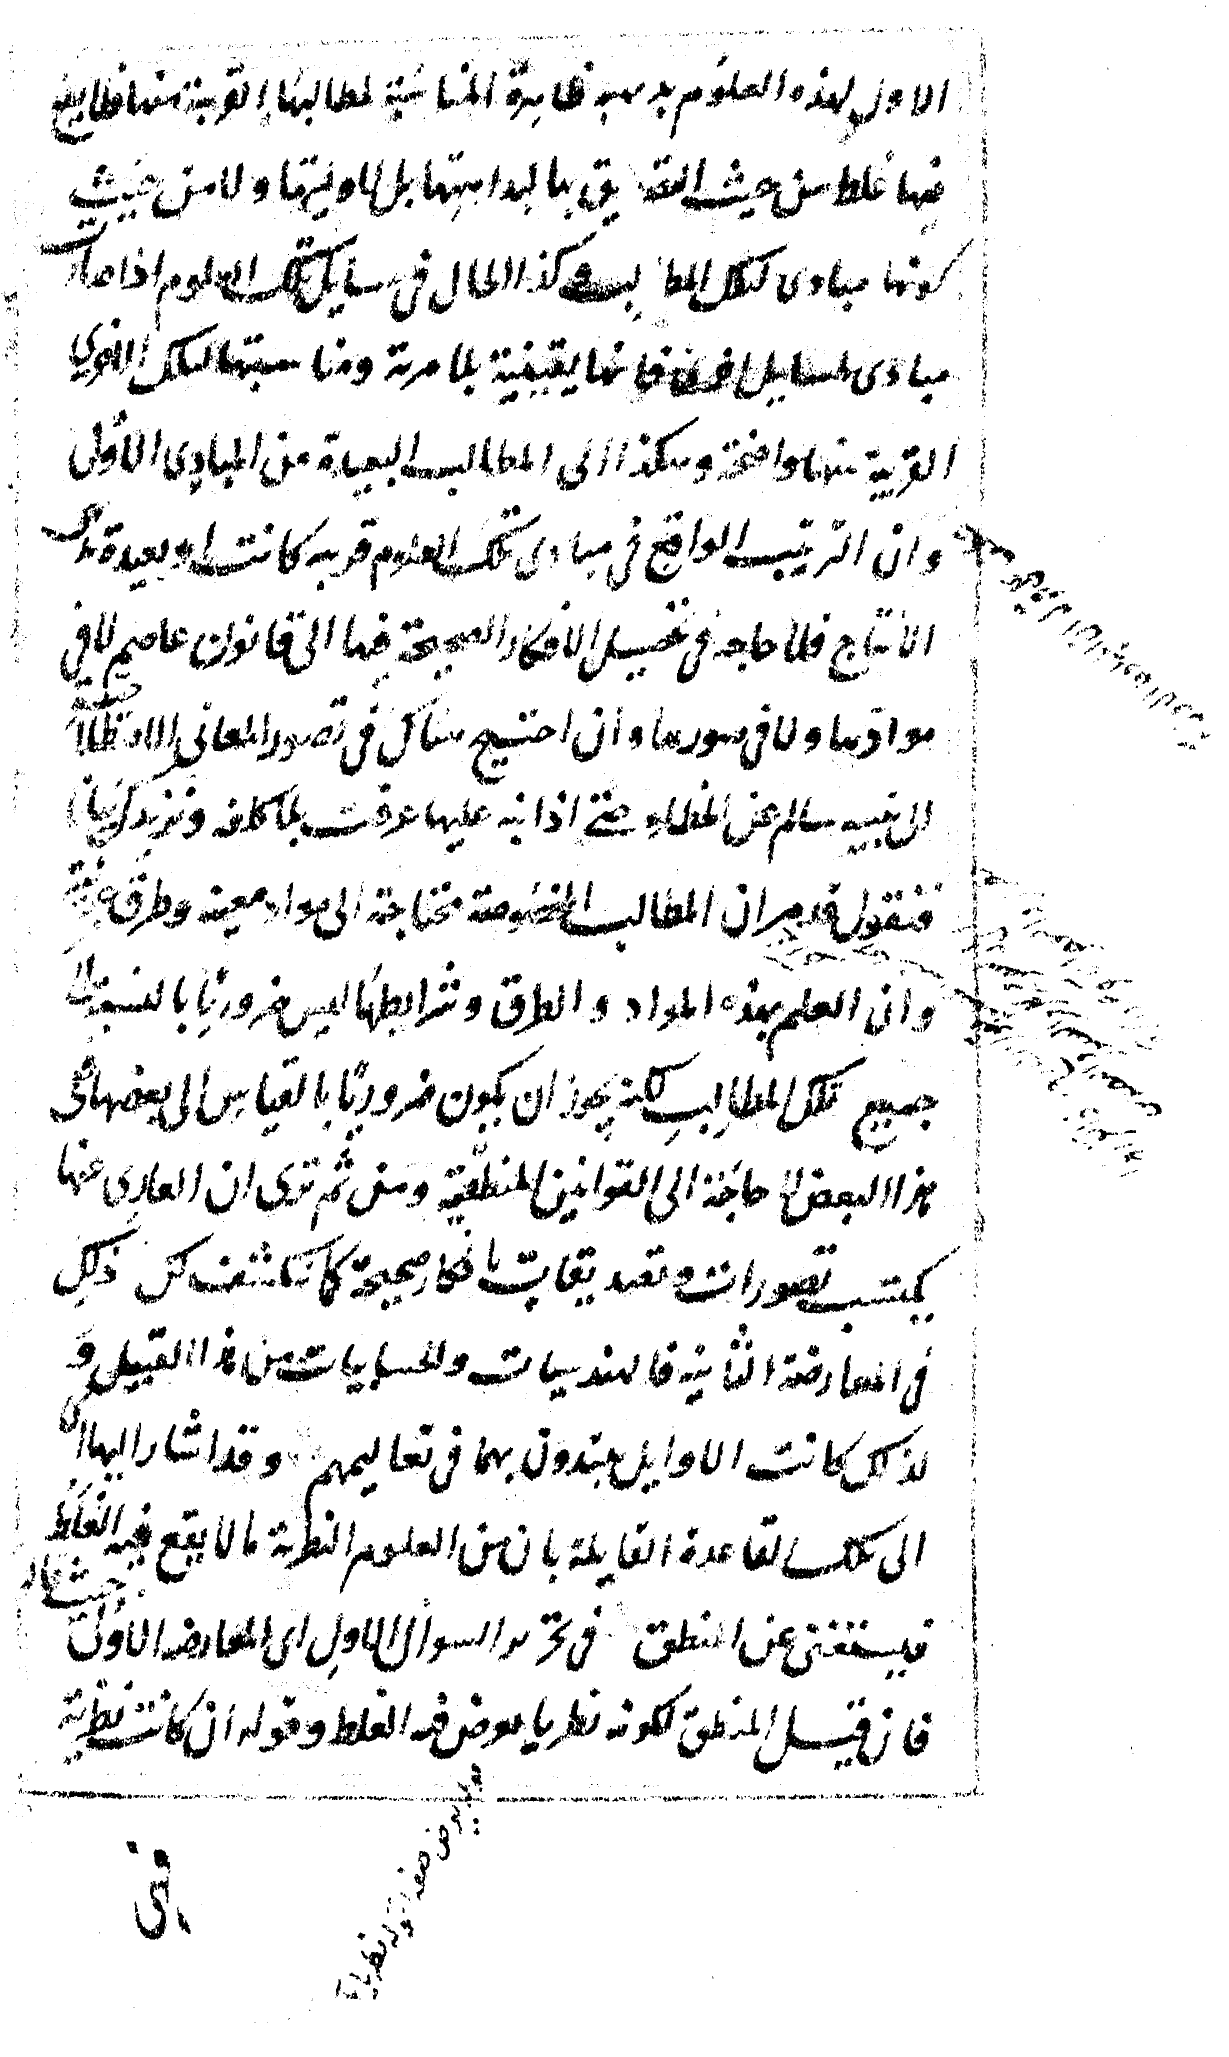 الاول لهذه العلوم بديهية ظاهرة المناسبة لمطالبها القريبة منها فلا يقع
فيها غلط من حيث التصديق بها لبداهتها بل لاوليتها ولا من حيث
كونها مبادى لتلك المطالب وهكذا الحال فى مسايل تلك العلوم اذا صارت
مبادى لمسايل اخرى فانها يقينية بلا مرية ومناسبتها لتلك الاخرى
القريبة منها واضحة وهكذا الى المطالب البعيدة من المبادى الاول
وان الترتيب الواقع فى مبادى تلك العلوم قريبة كانت او بعيدة
الانتاج فلا حاجة فى تحصيل الافكار الصحيحة فيها الى قانون عاصم لا فى
موادها ولا فى صورها وان احتيج هناك فى تصور المعانى
الى تنبيه سالم عن الخطاء حتى اذا نبه عليها عرفت بلا كلفة ونزيدك بيانا
فنقول قد مر ان المطالب المخصوصة محتاجة الى مواد معينة وطرق
وان العلم بهذه المواد والطرق وشرايطها ليس ضروريا بالنسبة الى
جميع تلك المطالب لكنه يجوز ان يكون ضروريا بالقياس الى بعضها ففى
هذا البعض لا حاجة الى القوانين المنطقية ومن ثم ترى ان العارى عنها
يكتسب تصورات وتصديقات بافكار صحيحة كما ستكشف كل ذلك
فى المعارضة الثانية فالهندسيات والحسابيات من هذا القبيل و
لذلك كانت الاوايل يبتدون بهما فى تعاليمهم وقد اشار اليها
الى تلك القاعدة القايلة بان من العلوم النظرية ما لا يقع فيه الغلط
فيستغنى عن المنطق فى تحرير السوال الاول اى المعارضة الاولى حيث قال
فان قيل المنطق لكونه نظريا يعرض فيه الغلط وقوله ان كانت نظرية